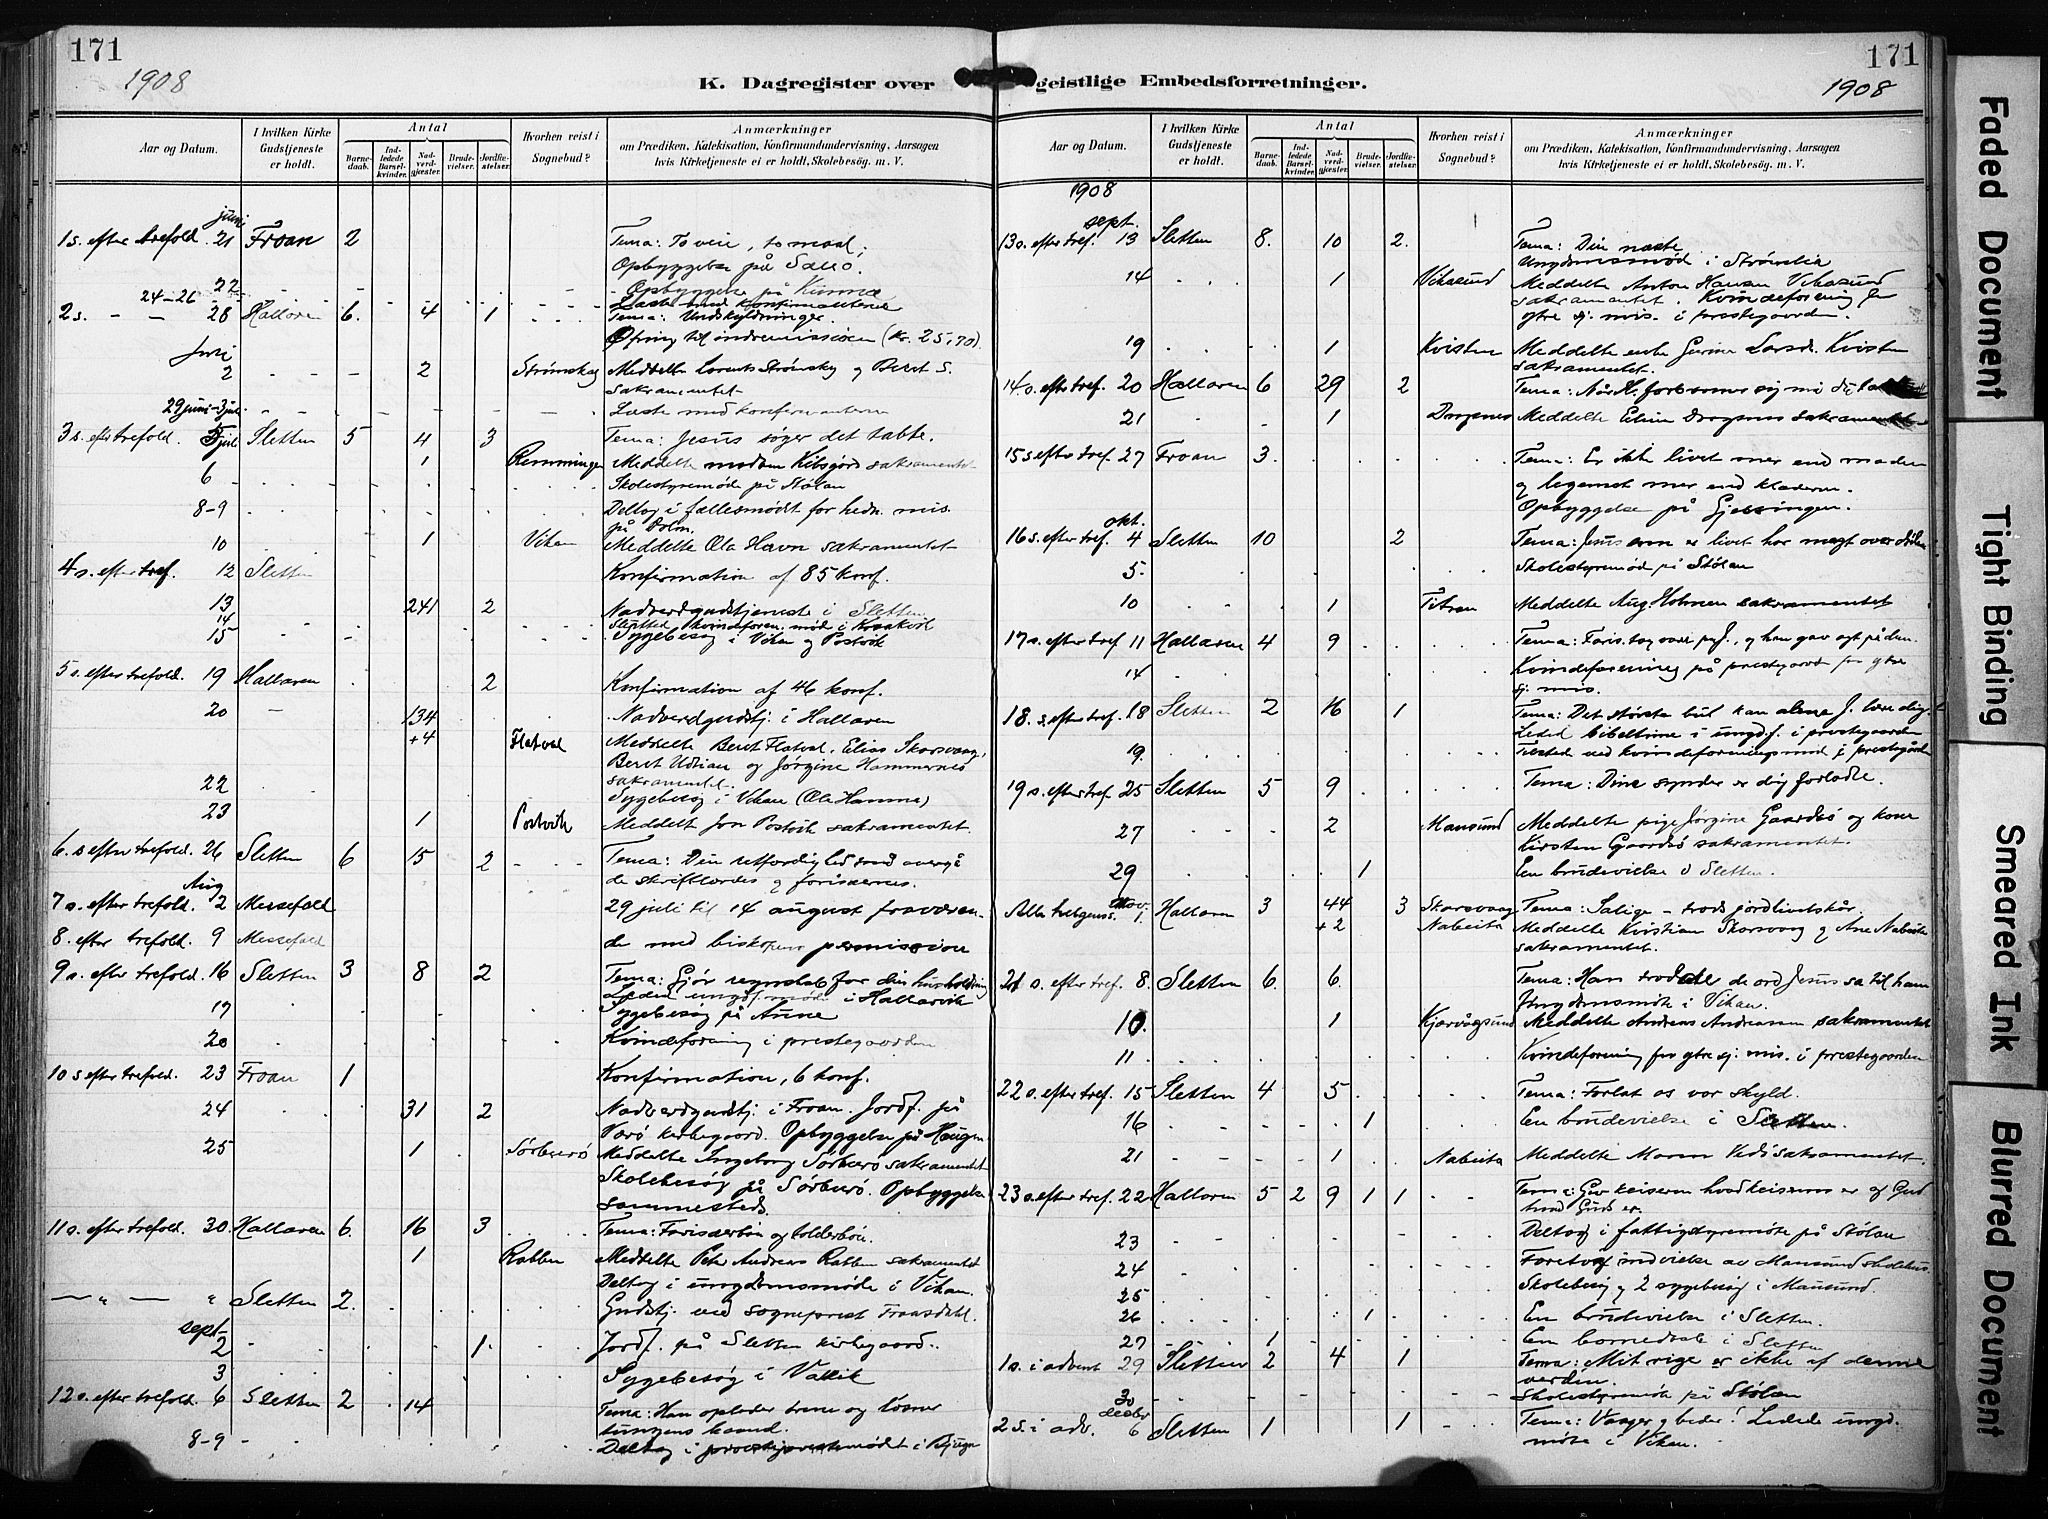 171
1908
K. Dagregister over
Aar og Datum.
I hvilken Kirke Gudstjeneste er holdt.
Antal
Barnedaab.
Indledede Barselkvinder.
Nadverdgjæster.
Brudevielser.
Jordfæstelser.
Hvorhen reist i Sognebud?
Anmærkninger
om Prædiken, Katekisation, Konfirmandundervisning, Aarsagen
hvis Kirketjeneste ei er holdt, Skolebesøg. m. V.
juni
1 s. efter trefold. 21 Froan 2 Tema: To veie, to maal;
Opbyggelse på
22 Opbyggelse på
24-26 Læste med konfirmanterne
2 s. — — 28 Hallaren 6. 4 1 Tema: Undskyldninger.
Ofring til indremissionen (Kr. 25,70).
Juli
2 2 Strømskag Meddelte Strømskag og Beret S.
sakramentet
29 juni-3 juli Læste med konfirmanterne
3 s. efter trefold. 5 juli Sletten 5 4 3 Tema: Jesus søger det tabte.
1 Meddelte madam sakramentet
6 Skolestyremøde på Stølan
8-9 Deltog i fællesmødet for hedn. mis.
på Dolm.
10 1 Vikan Meddelte Ola Havn sakramentet
4 s. efter tref. 12 Sletten Konfirmation af 85 konf.
13 241 2 Nadverdgudstjeneste i Sletten
14 kvindeforen. mød i
15 Sygebesøg i Vikan og Postvik
5 s. efter trefold. 19 Hallaren 2 Konfirmation af 46 konf.
20 — 134 Nadverdgudstj. i Hallaren
+4 Flatval Meddelte Beret Flatval, Elias Skarsvaag,
Beret Udtian og Jørgine Hammernes
sakramentet.
22 Sygebesøg i Vikan (Ola Hamma)
23 1 Postvik Meddelt Jon Postvik sakramentet.
6. s efter trefold. 26 Sletten 6 15 2 Tema: Din retfærdighed maa overgå
de skriftlærdes og farisæernes.
Aug
7 s. efter trefold. 2 Messefald 29 juli til 14 august fraværen-
8. efter trefold. 9 Messefald de med biskopens permission
9 s. efter trefold. 16 Sletten 3 8 2 Tema: Gjør regnskab for din husholdning
Leded ungd. møde i Hallarvik
17 Sygebesøg på Aune
20 Kvindeforening i prestegaarden
10 s efter trefold. 23 Froan 1 Konfirmation, 6 konf.
24 31 2 Nadverdgudstj. i Froan. Jordf. på
kirkegaard. Opbyggelse på
25 1 Sørburø Meddelte Ingeborg Sørburø sakramentet
Skolebesøg på Sørburø. Opbyggelse
sammesteds.
11 s. efter trefold. 30. Hallaren 6. 16 3 Tema: Farisæerbøn og tolderbøn.
1 Rabben Meddelte Peter Andreas Rabben sakramentet
Deltog i ungdomsmøde i Vikan.
— " — " Sletten 2. Gudstj. ved sogneprest
sept.
2 1. Jordf. på Sletten kirkegaard.
3 Sygebesøg i Vattik
12 s. efter trefold. 6 Sletten 2 14 Tema: Han oplader ørene og løsner
tungens baand.
8-9 Deltog i i Bjugn
171
1908
geistlige Embedsforretninger.
Aar og Datum.
I hvilken Kirke Gudstjeneste er holdt.
Antal
Barnedaab.
Indledede Barselkvinder.
Nadverdgjæster.
Brudevielser.
Jordfæstelser.
Hvorhen reist i Sognebud?
Anmærkninger
om Prædiken, Katekisation, Konfirmandundervisning, Aarsagen
hvis Kirketjeneste ei er holdt, Skolebesøg. m. V.
1908
sept.
13 s. efter tref. 13 Sletten 8. 10 2. Tema: Din næste
Ungdomsmød i
14 1 Vikasund Meddelte Anton Hansen Vikasund
sakramentet. Kvindeforening for
ytre sj. mis. i prestegaarden.
19 1 Kvisten Meddelte enke Gurine Larsd. Kvisten
sakramentet.
14 s. efter tref. 20 Hallaren 6 29 2 Tema: Når H. forbarmer sig
21 1 Dragsnes Meddelte Elen Dragsnes sakramentet
15 s efter tref. 27 Froan 3. Tema: Er ikke livet mer end maden
og legemet mer end klæderne.
Opbyggelse på Gjessingen.
okt.
16 s. efter tref. 4 Sletten 10 2 Tema: Jesus som er livet har magt over døden
5. Skolestyremød på Stølan
10 1 Titran Meddelte Aug. Holmen sakramentet
17 s. efter tref. 11 Hallaren 4 9 Tema: og han gav agt på den.
14 Kvindeforening på prestegaard for ytre
sj. mis.
18. s. efter tref. 18 Sletten 2 16 1 Tema: Det største bud kan alene J. lære dig.
Leded bibeltime i ungd.f. i prestegaarden
19. Tilsted ved kvindeforeningsmød i prestegården
19 s. efter tref. 25 Sletten 5 9 Tema: Dine synder er dig forladte.
27 2 Mausund Meddelte pige Jørgine Gaardsø og kone
Kirsten Gaardsø sakramentet.
29 1 En brudevielse i Sletten.
Nov.
Alle helgenss. 1. Hallaren 3 44 3 Skarsvaag Tema: Salige – trods jordlivets kår.
+2 Nabeita Meddelte Kristian Skarsvaag og Ane Nabeita
sakramentet.
21 s. efter tref. 8. Sletten 6. 6. Tema: Han trodde de ord Jesus sa til ham
Ungdomsmøte i Vikan.
10. 1 Kjærvågsund Meddelte Andreas Andreassen sakramentet
11. Kvindeforening for ytre sj. mis. i prestegaarden
22 s. efter tref. 15 Sletten 4 5 Tema: Forlat os vor skyld.
16 1 En brudevielse i Sletten.
21 1 Nabeita Meddelte Maren sakramentet.
23 s. efter tref. 22 Hallaren 5 2 9 1 1 Tema: Giv keiseren hvad keiserens er og Gud
hvad Guds er.
23 Deltog i fattigstyremøte på Stølan
24 Foretog indvielse av Mausund skolehus.
25 Skolebesøg og 2 sygebesøg i Mausund.
26 1 En brudevielse i Sletten.
27 1 En barnedaab i Sletten
1 s. i advent 29 Sletten 2 4 1 Tema: Mit rige er ikke af denne
verden.
30 Skolestyremøte på Stølan
decbr
2 s. i adv. 6 Sletten 1 1 Tema: Vaager og beder! Ledede ungd.
møte i Vikan.
Faded Document
Tight Binding
Smeared Ink
Blurred Document